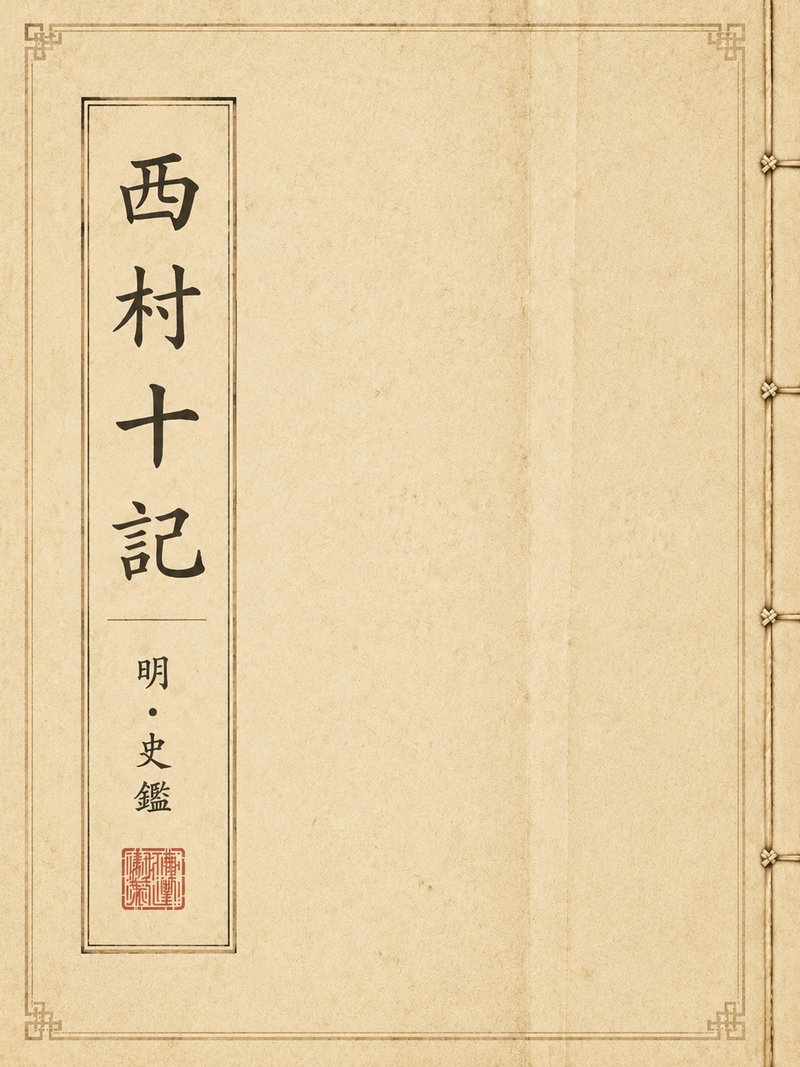 西村十記
明·史鑑